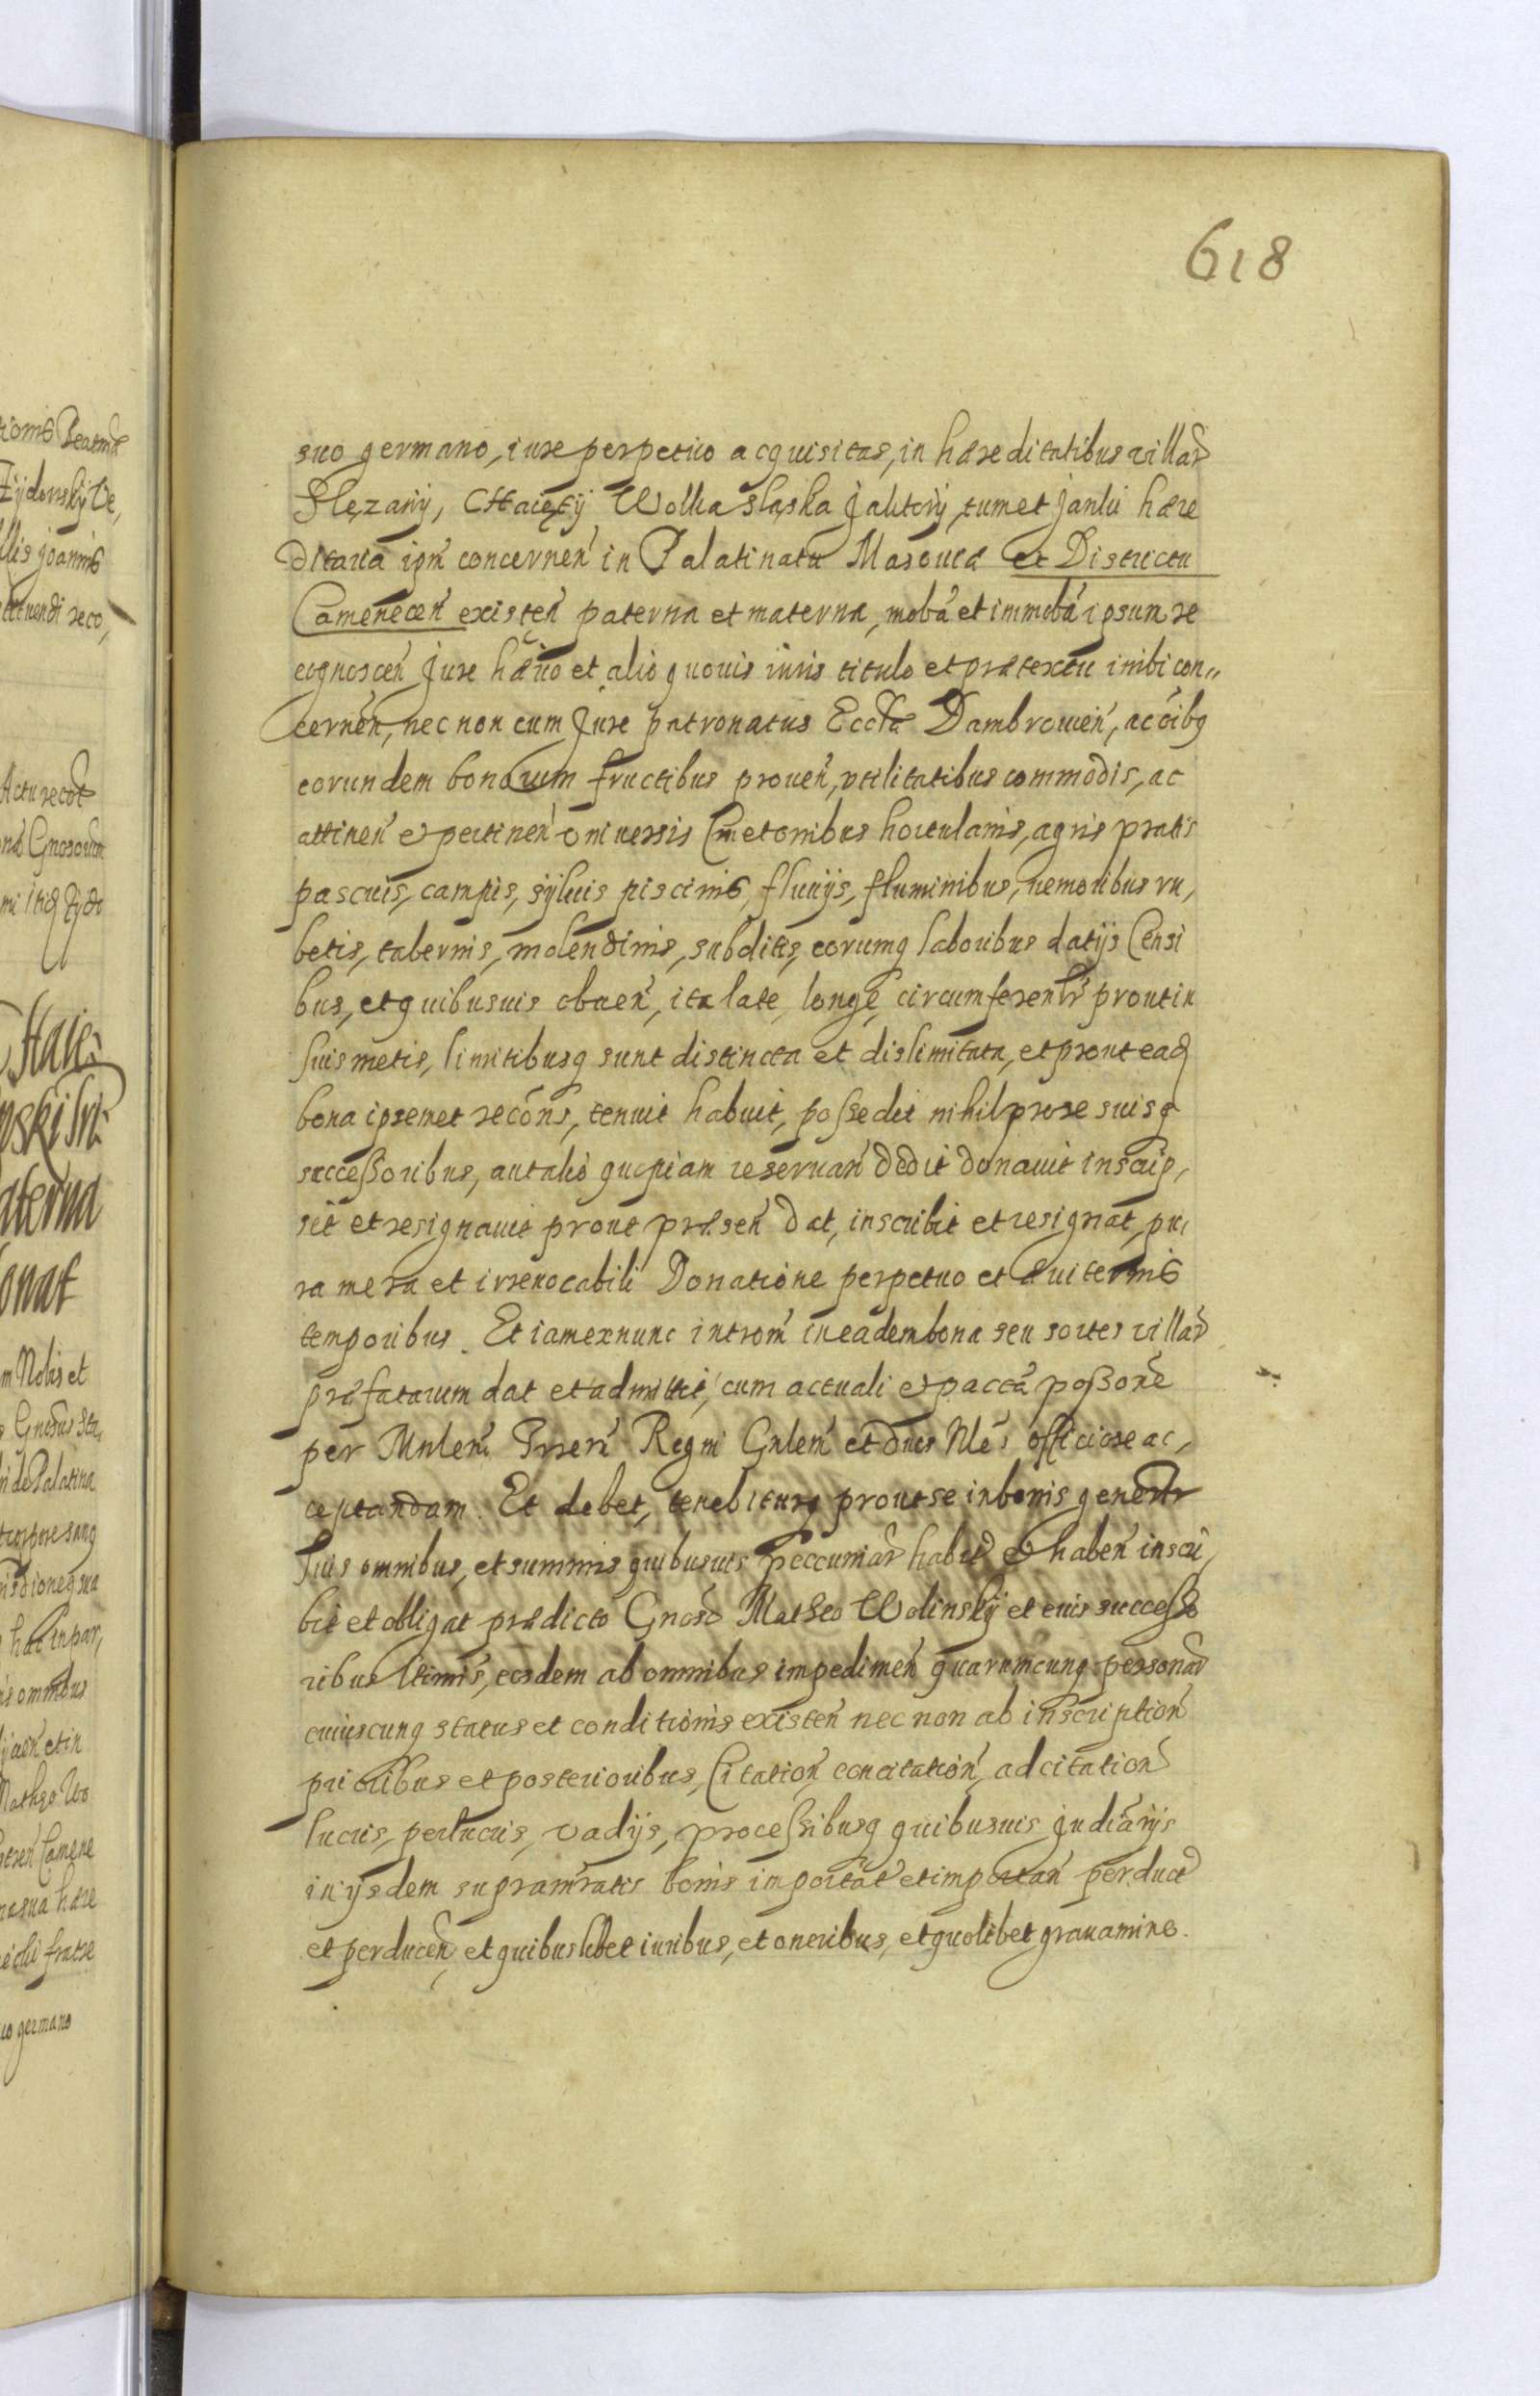 618
suo germano, iure perpetuo acquisitas, in hæreditatibus villar
Slęzany, Chaięty Wolka slaska Jaktory, tum et Janki hære
ditaria ipm concernen in Palatinatu Masouiæ et Districtu
Camenecen existen paterna et materna, moba et immoba ipsum re
cognoscen Jure hærio et alio quouis iuris titulo et prætextu inibi con„
cernen, nec non cum Jure patronatus Eccliæ Dambrouien, ac oibq
eorundem bonorum fructibus prouen, vtilitatibus commodis, ac
attinen et pertinen vniuersis Cmetonibus hortulanis, agris pratis
pascuis, campis, syluis piscinis, fluuijs, fluminibus, nemoribus ru,
betis, tabernis, molendinis, subditis, eorumq laboribus datijs Censi
bus, et quibusuis obuen, ita late, longe, circumferentr prout in
suis metis, limitibusq sunt distincta et dislimitata, et prout eaq
bona ipsemet recons, tenuit habuit, possedit nihil pro se suisq
successoribus, aut alio quopiam reseruan dedit donauit inscrip,
sit et resignauit prout præsen dat, inscribit et resignat, pu,
ra mera et irreuocabili Donatione perpetuo et æuiternis
temporibus. Et iam ex nunc introm in eadem bona seu sortes villar
præfatarum dat et admittit, cum actuali et paccta possone
per Mnlem Prren Regni Gnlem et dnes Nles officiose ac,
ceptandam. Et debet, tenebiturq prout se in bonis genertr
suis omnibus, et summis quibusuis peccuniar habit et haben inscri,
bit et obligat prædicto Gnoso Matheo Wolinsky et euis successo
ribus ltimis, eosdem ab omnibus impedimen quarumcunq personar
cuiuscunq status et conditionis existen nec non ab inscription
prioribus et posterioribus, Citation, concitation, adcitation
lucris, perlucris, vadijs, processibusq quibusuis judiarijs
in ijsdem supramratis bonis importat et importan perduct
et perducen, et quibuslibet iuribus, et oneribus, et quolibet grauamine.